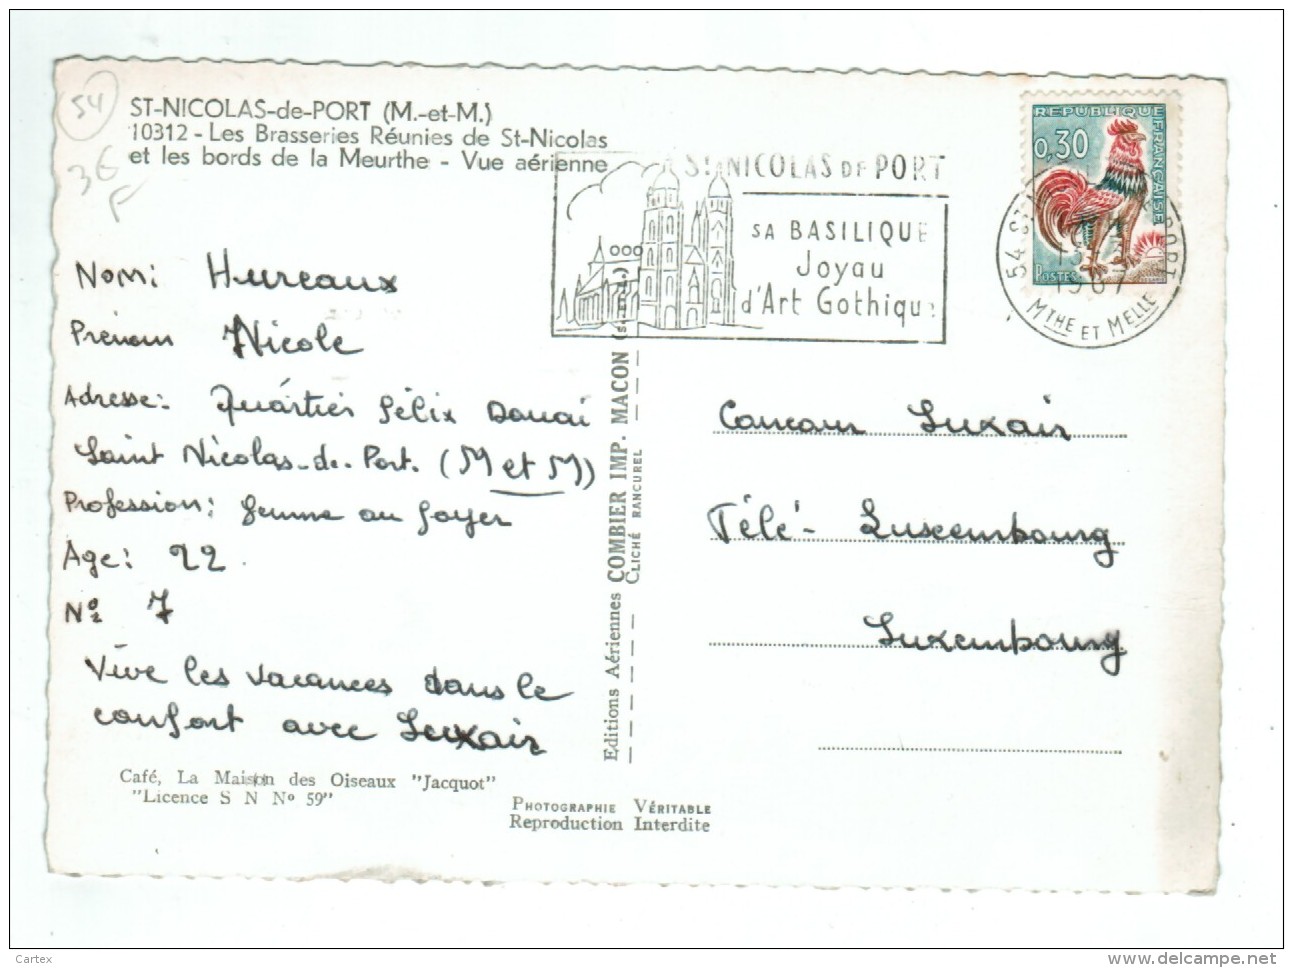 54
3€
F
ST-NICOLAS-de-PORT (M.-et-M.)
10312 - Les Brasseries Réunies de St-Nicolas
et les bords de la Meurthe - Vue aérienne
ST NICOLAS DE PORT
SA BASILIQUE
Joyau
d'Art Gothique
REPUBLIQUE FRANÇAISE
0,30
POSTES
1967
MTHE ET MELLE
Nom: Hureaux
Prénom Nicole
Adresse: Quártier Félix Douai
Saint Nicolas-de-Port. (M et M)
Profession: femme au foyer
Age: 22.
Nº 7
Vive les vacances dans le
confort avec Luxair
Concour Luxair
Télé- Luxembourg
Luxembourg
Café, La Maison des Oiseaux "Jacquot"
"Licence S N Nº 59"
Editions Aériennes COMBIER IMP. MACON
CLICHÉ RANCUREL
PHOTOGRAPHIE VÉRITABLE
Reproduction Interdite
Cartex
www.delcampe.net